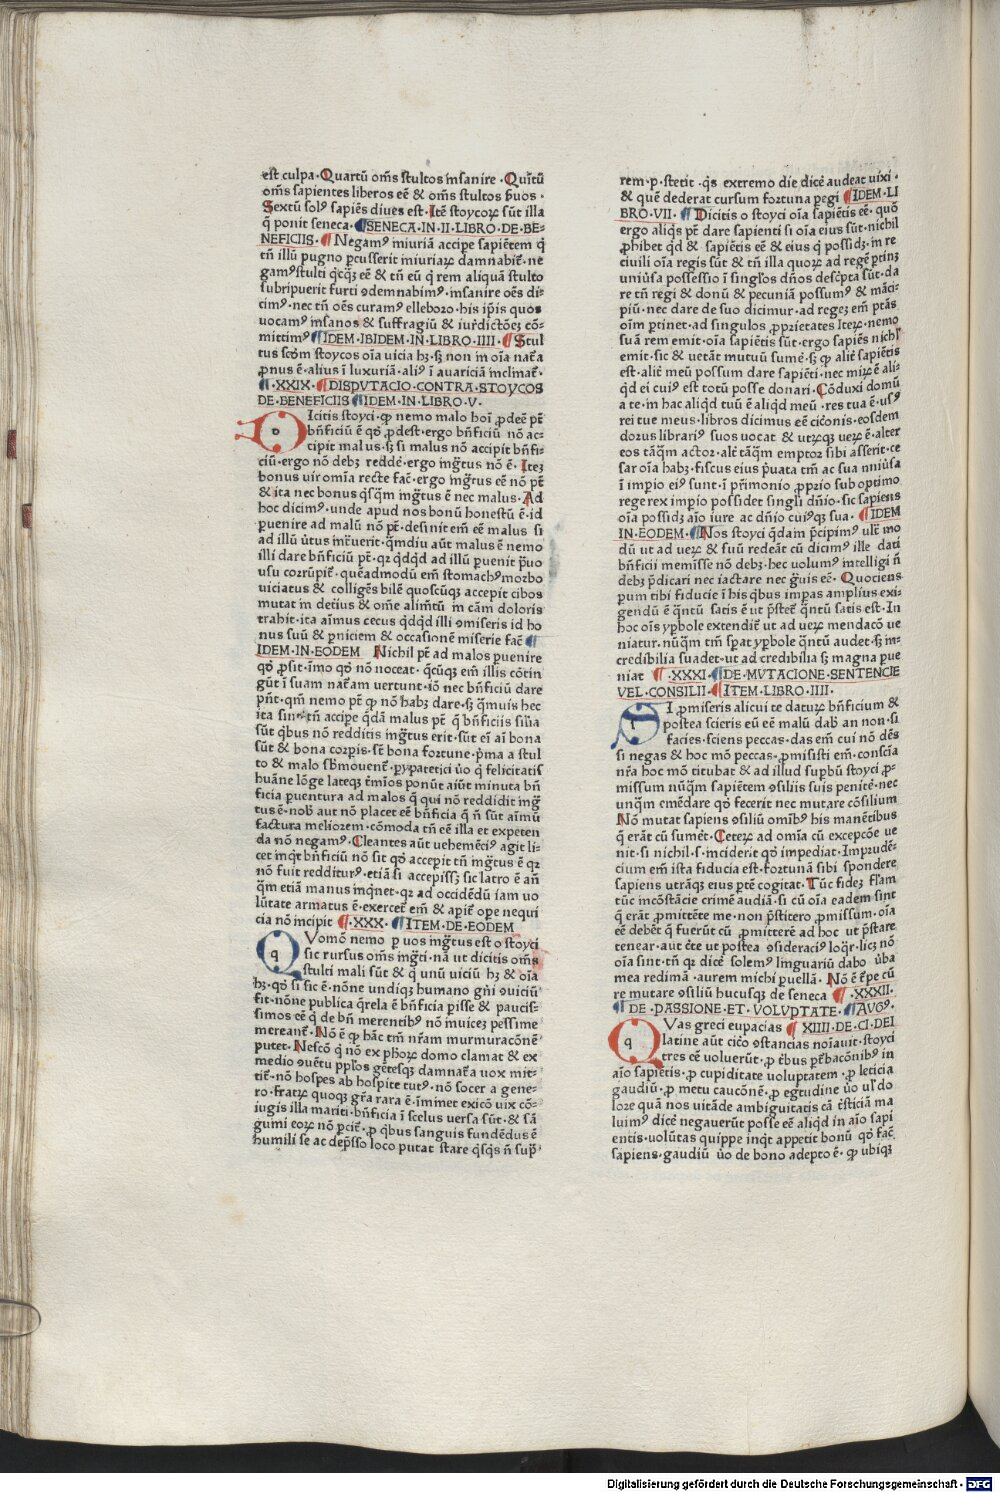 est culpa·Quartū oms̄ stultos insanire·Quītū
oms̄ sapientes liberos eē & oms̄ stultos ẜuos·
Sextū solꝰ sapiēs diues est·Itē stoycoꝝ sūt illa
q̄ ponit seneca·¶SENECA·IN·II·LIBRO·DE·BE-
NEFICIIS·¶Negamꝰ iniuriā accipe sapiētem q̄
tn̄ illū pugno ꝑcusserit iniuriaꝝ damnabit̄·ne
gamꝰ stulti qͥcqͥꝫ eē & tn̄ eū q̄ rem aliquā stulto
subripuerit furti ꝯdemnabimꝰ·insanire oēs di-
cimꝰ·nec tn̄ oēs curamꝰ elleboro·his ip̄is quos
uocamꝰ insanos & suffragiū & iurdictōeꝫ cō-
mittimꝰ ¶IDEM·IBIDEM·IN·LIBRO·IIII·¶Stul
tus scd̄m stoycos oīa uicia hꝫ·sꝫ non in oīa nat̄a
ꝓnus ē·alius ī luxuriā·aliꝰ ī auariciā inclinat̄·
¶·XXIX·¶DISPVTACIO·CONTRA·STOYCOS
DE·BENEFICIIS ¶IDEM·IN·LIBRO·V·
DIcitis stoyci·ꝙ nemo malo hoī ꝓdeē pt̄
bn̄ficiū ē qō ꝓdest·ergo bn̄ficiū nō ac-
cipit malus·sꝫ si malus nō accipit bn̄fi-
ciū·ergo nō debꝫ reddē·ergo ingͣtus nō ē·Iteꝫ
bonus uir omīa recte fac̄·ergo ingͣtus eē nō pt̄
& ita nec bonus qͥsqͣm ingͣtus ē nec malus·Ad
hoc dicimꝰ·unde apud nos bonū honestū ē·id
ꝑuenire ad malū nō pt̄·desinit em̄ eē malus si
ad illū ūtus int̄uerit·qͣmdiu aūt malus ē nemo
illi dare bn̄ficiū pt̄·qꝛ qͥdqͥd ad illū ꝑuenit pͣuo
usu corrūpit̄·quēadmodū em̄ stomachꝰ morbo
uiciatus & colligēs bilē quoscūqꝫ accepit cibos
mutat in detius & om̄e alimt̄ū in cām doloris
trahit·ita aīmus cecus qͥdqͥd illi ꝯmiseris id ho
nus suū & ꝑniciem & occasionē miserie fac̄ ¶
IDEM·IN·EODEM Nichil pt̄ ad malos ꝑuenire
qō ꝓsit·īmo qō nō noceat·qͣcūqꝫ em̄ illis cōtin
gūt ī suam nat̄am uertunt·iō nec bn̄ficiū dare
pn̄t·qm̄ nemo pt̄ ꝙ nō habꝫ dare·sꝫ qͣmuis hec
ita sint tn̄ accipe qͣdā malus pt̄ q̄ bn̄ficiis sīlia
sūt qͥbus nō redditis ingͣtus erit·sūt eī aī bona
sūt & bona corꝑis·st̄ bona fortune·pͥma a stul
to & malo sb̄mouent̄·ꝑypatetici ūo q̄ felicitatis
huāne lōge lateqꝫ t̄mīos ponūt aiūt minuta bn̄
ficia ꝑuentura ad malos q̄ qui nō reddidit ingͣ
tus ē·nob̄ aut nō placet eē bn̄ficia q̄ n̄ sūt aīmū
factura meliorem·cōmoda tn̄ eē illa et expeten
da nō negamꝰ·Cleantes aūt uehemēciꝰ agit li-
cet inqͥt bn̄ficiū nō sit qō accepit tn̄ ingͣtus ē qꝛ
nō fuit redditurꝰ·etiā si accepissꝫ sic latro ē añ
qͣm etiā manus inqͥnet·qꝛ ad occidēdū iam uo
lūtate armatus ē·exercet̄ em̄ & apit̄ ope nequi
cia nō incipit ¶·XXX·¶ITEM·DE·EODEM
QVomō nemo ꝑ uos ingͣtus est o stoyci
sic rursus oms̄ ingͣti·nā ut dicitis oms̄
stulti mali sūt & q̄ unū uiciū hꝫ & oīa
hꝫ·qō si sic ē·nōne undiqꝫ humano gn̄i ꝯuiciū
fit·nōne publica qͣrela ē bn̄ficia ꝑisse & paucis-
simos eē q̄ de bn̄ merentibꝰ nō inuiceꝫ pessime
mereant̄·Nō ē ꝙ hāc tm̄ nr̄am murmuracōnē
putet·Nescō q̄ nō ex phoꝝ domo clamat & ex
medio ꝯuētu ppl̄os gētesqꝫ damnat̄a uox mit-
tit̄·nō hospes ab hospite tutꝰ·nō socer a gene-
ro·fratꝝ quoqꝫ gr̄a rara ē·imīnet exicō uix cō-
iugis illa mariti·bn̄ficia ī scelus uersa sūt·& sā
guini eoꝝ nō ꝑcit̄·ꝓ qͥbus sanguis fundēdus ē
humili se ac dep̄sso loco putat stare qͥsqͥs n̄ sup̄
rem·p·stetit·qͥs extremo die dicē audeat uixi·
& quē dederat cursum fortuna ꝑegi ¶IDEM·LI
BRO·VII·¶Dicitis o stoyci oīa sapiētis eē·quō
ergo aliqͥs pt̄ dare sapienti si oīa eius sūt·nichil
ꝓhibet qͥd & sapiētis eē & eius q̄ possidꝫ·in re
ciuili oīa regis sūt & tn̄ illa quoꝝ ad regē ꝑtinꝫ
uniūsa possessio ī singl̄os dn̄os desc̄pta sūt·da
re tn̄ regi & donū & pecuniā possumꝰ & mācī-
piū·nec dare de suo dicimur·ad regeꝫ em̄ ptās
oīm ꝑtinet·ad singulos ꝓprietates Iteꝝ·nemo
suā rem emit·oīa sapiētis sūt·ergo sapiēs nichl̄
emit·sic & uetāt mutuū sumē·sꝫ ꝙ alit̄ sapiētis
est·alit̄ meū possum dare sapiēti·nec miꝝ ē ali-
qͥd ei cuiꝰ est totū posse donari·Cōduxi domū
a te·in hac aliqͥd tuū ē aliqͥd meū·res tua ē·usꝰ
rei tue meus·libros dicimus eē cicōnis·eosdem
dorus librariꝰ suos uocat & utꝝqꝫ ueꝝ ē·alter
eos tāqͣm actor·alt̄ tāqͣm emptor sibi asserit·ce
sar oīa habꝫ·fiscus eius pͥuata tm̄ ac sua niūsa
ī imꝑio eiꝰ sunt·ī pr̄imonio ꝓprio sub optimo
rege rex imꝑio possidet singl̄i dn̄io·sic sapiens
oīa possidꝫ aīo iure ac dn̄io cuiꝰqꝫ sua·¶IDEM
IN·EODEM·¶Nos stoyci qͥdam p̄cipimꝰ ult̄ mo
dū ut ad ueꝝ & suū redeāt cū dicimꝰ ille dati
bn̄ficii meminisse nō debꝫ·hec uolumꝰ intelligi n̄
debꝫ p̄dicari nec iactare nec gͣuis eē·Quociens
ꝑum tibi fiducie ī his qͥbus imꝑas amplius exi-
gendū ē qͣntū satis ē ut p̄stet̄ qͣntū satis est·In
hoc oīs yꝑbole extendit̄ ut ad ueꝝ mendacō ue
niatur·nūqͣm tm̄ sꝑat yꝑbole qͣntū audet·sꝫ in-
credibilia suadet·ut ad credibilia sꝫ magna ꝑue
niat ¶·XXXI·¶DE·MVTACIONE·SENTENCIE
VEL·CONSILII·¶ITEM·LIBRO·IIII·
SI ꝓmiseris alicui te datuꝝ bn̄ficium &
postea scieris eū eē malū dab̄ an non·si
facies·sciens peccas·das em̄ cui nō dēs
si negas & hoc mō peccas·ꝓmisisti em̄·conscīa
nr̄a hoc mō titubat & ad illud supbū stoyci ꝓ-
missum nūqͣm sapiētem ꝯsiliis suis penitē·nec
unqͣm emēdare qō fecerit nec mutare cōsilium
Nō mutat sapiens ꝯsiliū omībꝰ his manētibus
q̄ erāt cū sumēt·Ceteꝝ ad omīa cū excepcōe ue
nit·si nichil·s·inciderit qō impediat·Imprudē-
cium em̄ ista fiducia est·fortunā sibi spondere
sapiens utrāqꝫ eius ꝑtē cogitat·Tūc fideꝫ fl̄am
tūc incōstācie crimē audiā·si cū oīa eadem sint
q̄ erāt ꝓmittēte me·non p̄stitero ꝓmissum·oīa
eē debēt q̄ fuerūt cū ꝓmitterē ad hoc ut p̄stare
tenear·aut c̄te ut postea ꝯsideraciꝰ loqͣr·licꝫ nō
oīa sint·tn̄ qꝫ dicē solemꝰ linguariū dabo ūba
mea redimā·aurem michi ꝑuellā·Nō ē t̄pe cū
re mutare ꝯsiliū hucusqꝫ de seneca ¶·XXXII·
¶DE·PASSIONE·ET·VOLVPTATE·¶AVGꝰ·
QVas greci eupacias ¶XIIII·DE·CI·DEI
latine aūt cic̄o ꝯstancias noīauit·stoyci
tres eē uoluerūt·ꝓ t̄bus ꝑt̄bacōnibꝰ in
aīo sapiētis·ꝓ cupiditate uoluptatem·ꝓ leticia
gaudiū·ꝓ metu caucōnē·ꝓ egtudine ūo ul̄ do
lore quā nos uitāde ambiguitatis cā t̄sticiā ma
luimꝰ dicē negauerūt posse eē aliqͥd in aīo sapi
entis·uolūtas quippe inqͥt appetit bonū qō fac̄
sapiens·gaudiū ūo de bono adepto ē·ꝙ ubiqꝫ
Digitalisierung gefördert durch die Deutsche Forschungsgemeinschaft - DFG